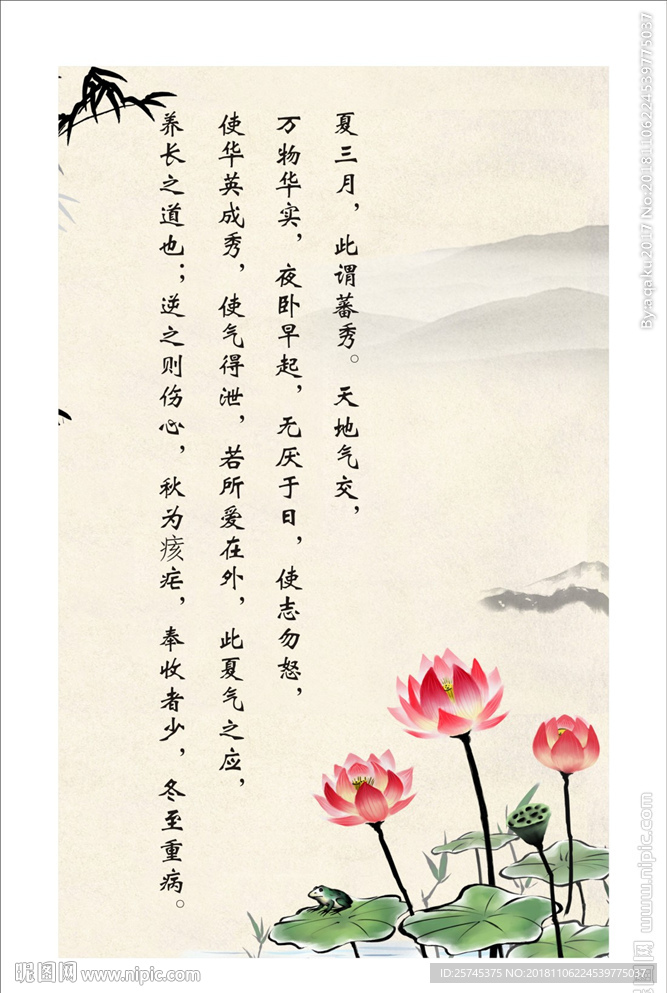 夏三月，此谓蕃秀。天地气交，
万物华实，夜卧早起，无厌于日，使志勿怒，
使华英成秀，使气得泄，若所爱在外，此夏气之应，
养长之道也；逆之则伤心，秋为痎疟，奉收者少，冬至重病。
By:aqaku2017 No:20181106224539775037
昵图网 www.nipic.com
昵图网 www.nipic.com
ID:25745375 NO:20181106224539775037